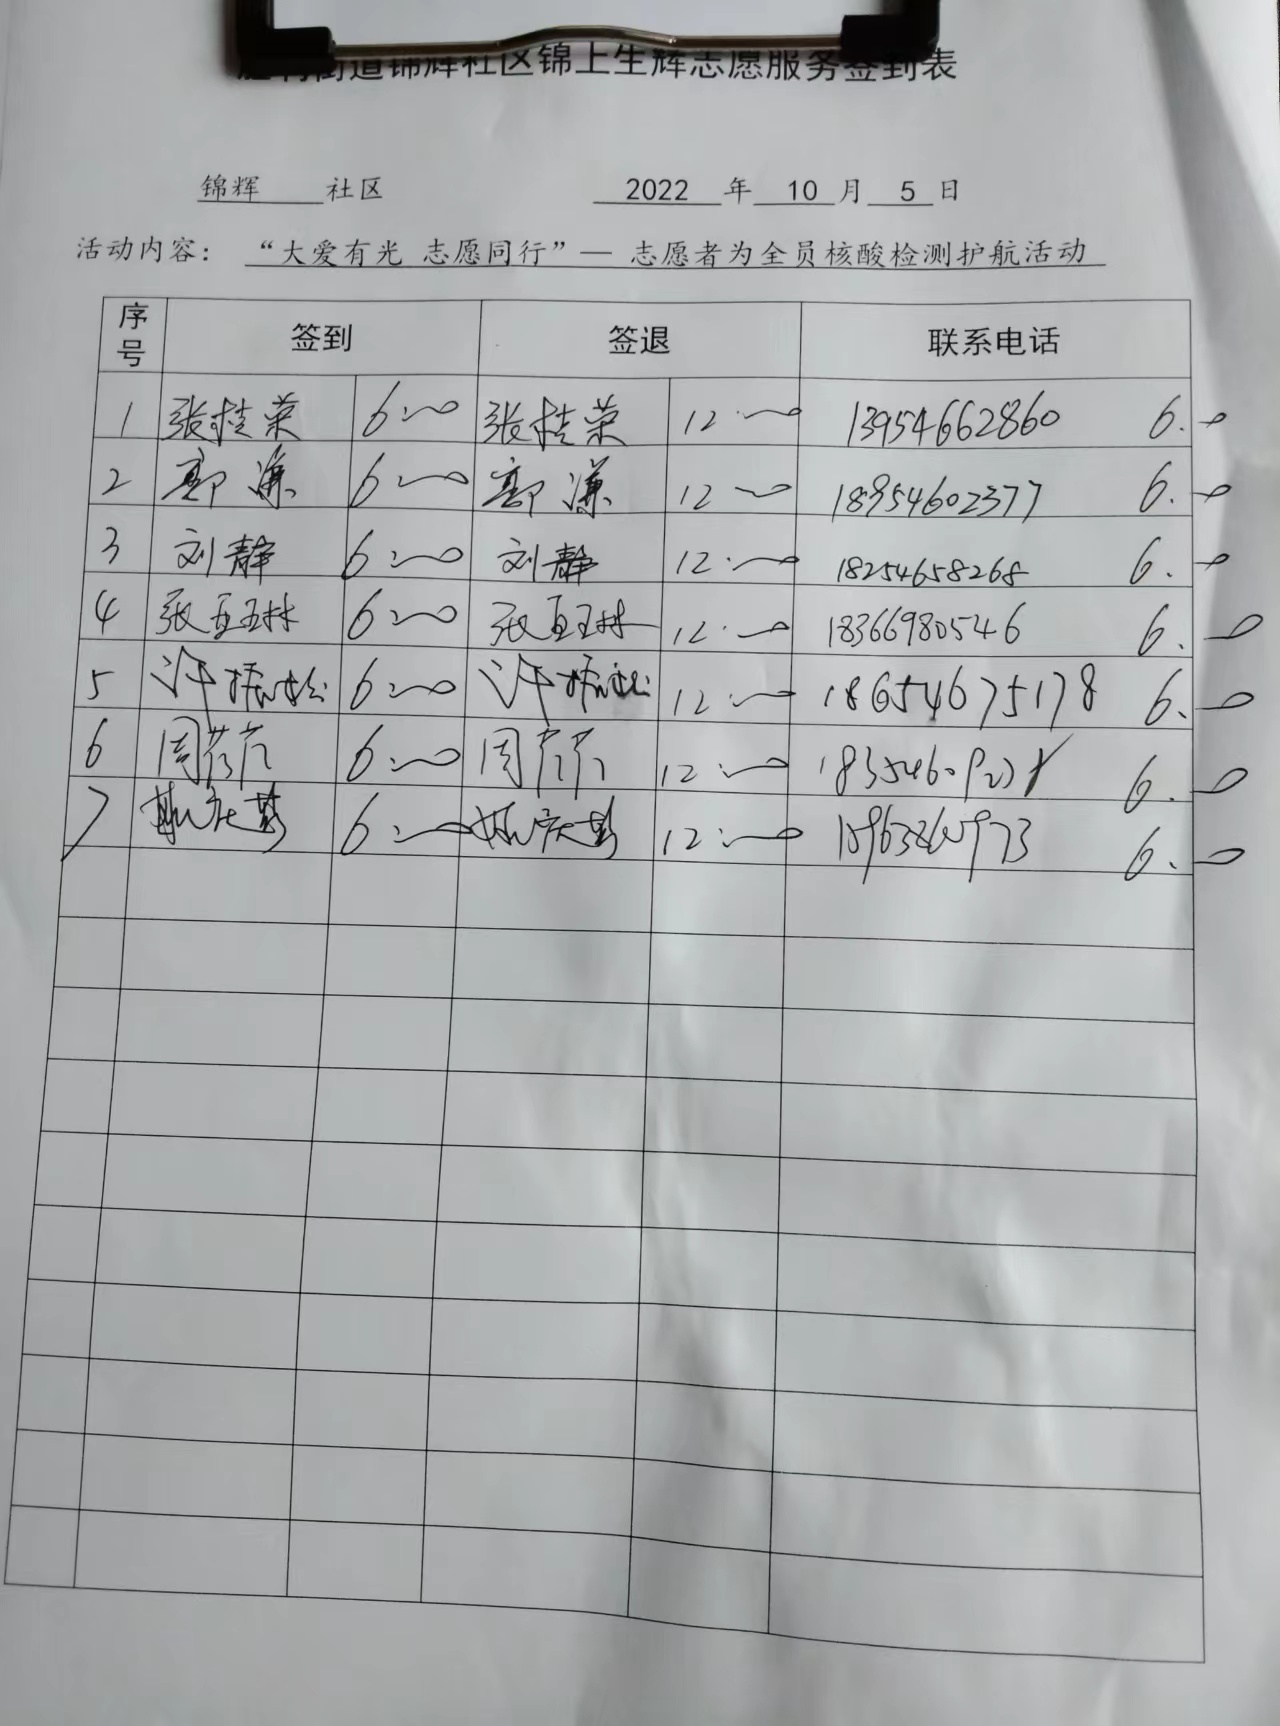 街道锦辉社区锦上生辉志愿服务签到表
锦辉 社区 2022 年 10 月 5 日
活动内容： “大爱有光 志愿同行”— 志愿者为全员核酸检测护航活动
序号 签到 签退 联系电话
1 张桂荣 6:00 张桂荣 12:00 13954662860 6.0
2 郭濂 6:00 郭濂 12:00 18954602377 6.0
3 刘静 6:00 刘静 12:00 18254658268 6.0
4 6:00 12:00 18366980546 6.0
5 许振松 6:00 许振松 12:00 18654675178 6.0
6 周芹芹 6:00 周芹芹 12:00 6.0
7 6:00 12:00 6.0